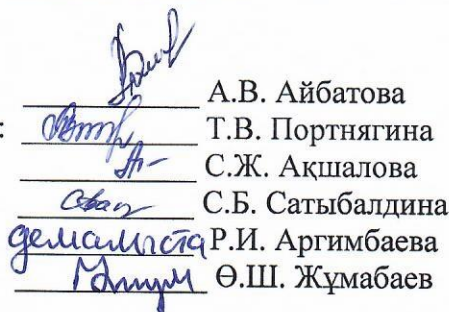 А.В. Айбатова
: Т.В. Портнягина
С.Ж. Ақшалова
С.Б. Сатыбалдина
демалыста Р.И. Аргимбаева
Ө.Ш. Жұмабаев